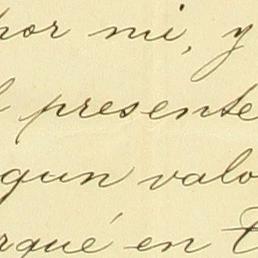 por mi, y
presente
gun valo
rqué en